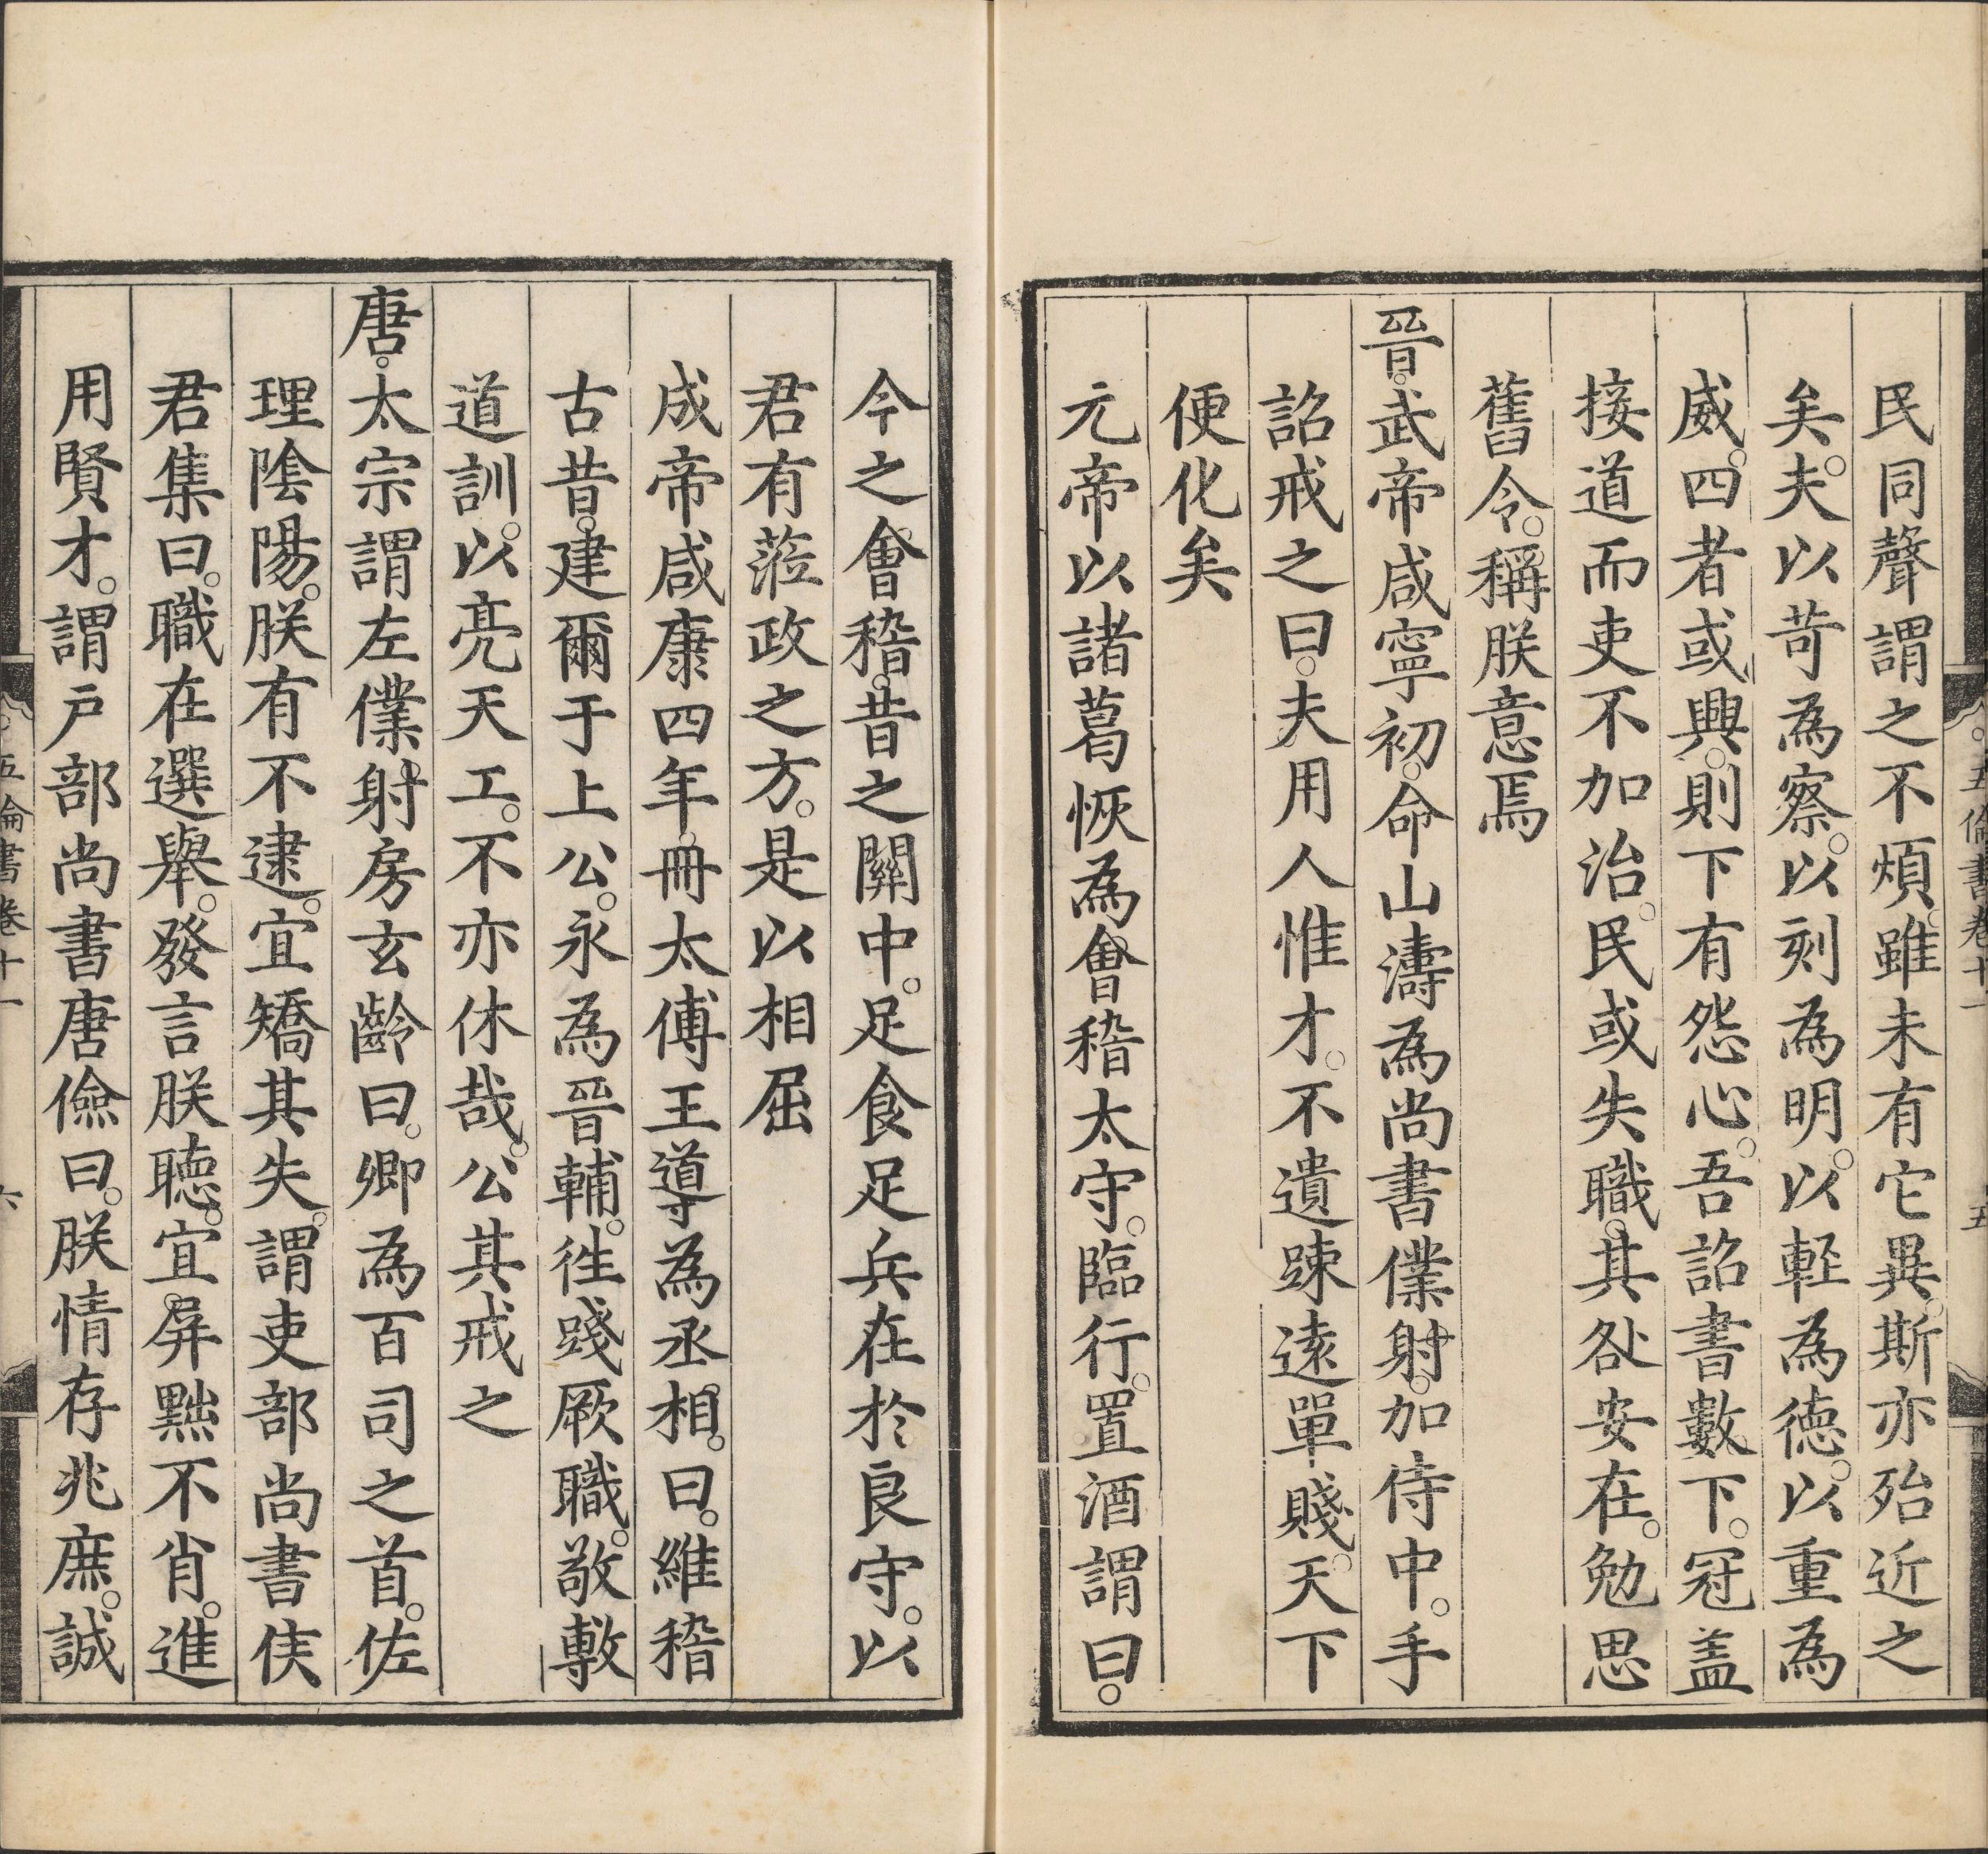 五倫書卷十一
五
民同聲謂之不煩。雖未有它異。斯亦殆近之
矣。夫以苛為察。以刻為明。以輕為德。以重為
威。四者或興。則下有怨心。吾詔書數下。冠盖
接道而吏不加治。民或失職。其咎安在。勉思
舊令。稱朕意焉
晉。武帝咸寧初。命山濤為尚書僕射。加侍中。手
詔戒之曰。夫用人惟才。不遺踈遠單賤。天下
便化矣
元帝以諸葛恢為會稽太守。臨行。置酒謂曰。
今之會稽。昔之關中。足食足兵在於良守。以
君有蒞政之方。是以相屈
成帝咸康四年。冊太傅王導為丞相。曰。維稽
古昔。建爾于上公。永為晉輔。往踐厥職。敬敷
道訓。以亮天工。不亦休哉。公其戒之
唐。太宗謂左僕射房玄齡曰。卿為百司之首。佐
理陰陽。朕有不逮。宜矯其失。謂吏部尚書侯
君集曰。職在選舉。發言朕聽。宜屏黜不肖。進
用賢才。謂戶部尚書唐儉曰。朕情存兆庶。誠
五倫書卷十一
六